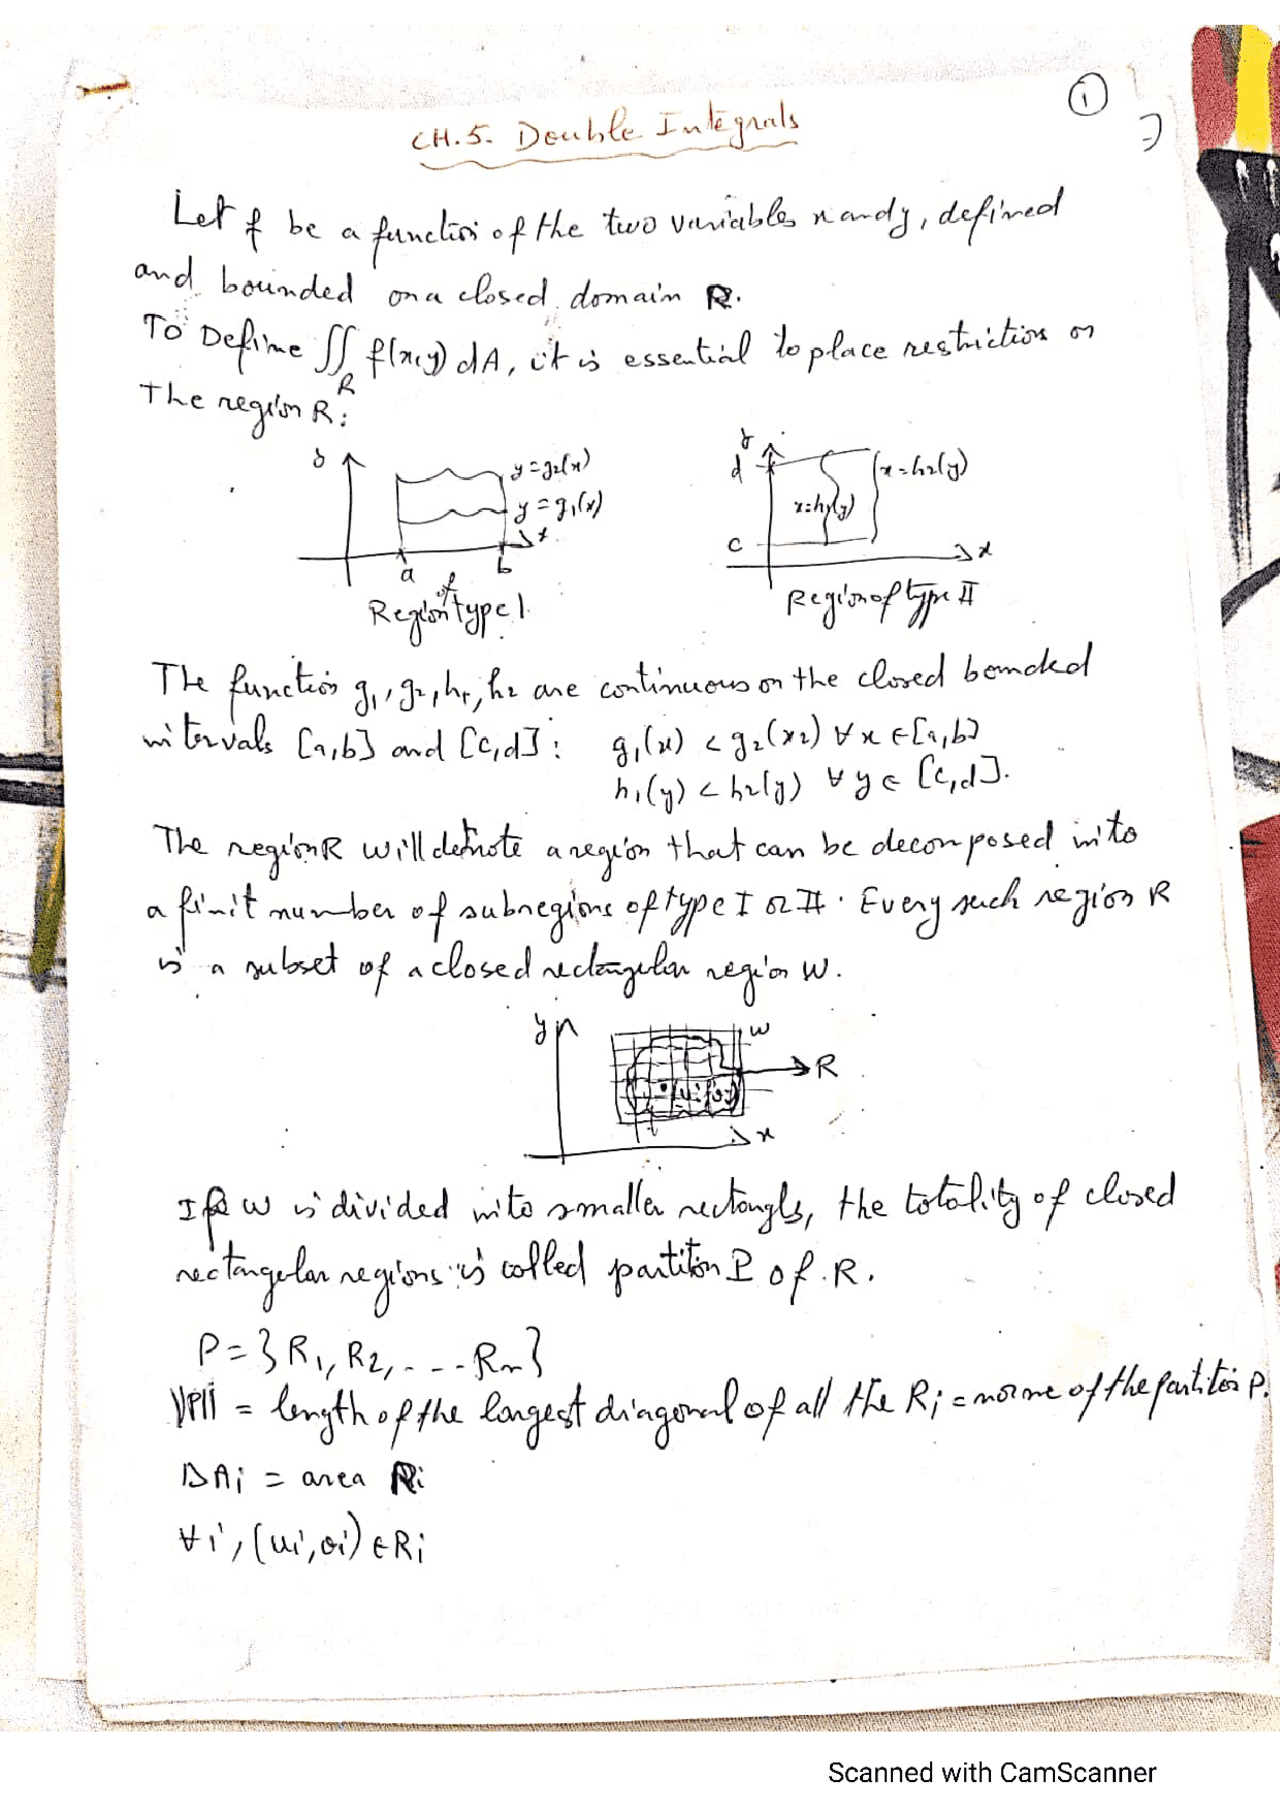 1
CH.5. Double Integrals
Let f be a function of the two variables x and y, defined
and bounded on a closed domain R.
To Define ∬_R f(x,y) dA, it is essential to place restriction on
The region R:
y
y=g2(x)
y=g1(x)
x
a
b
Region of type I.
y
d
x=h2(y)
x=h1(y)
c
x
Region of type II
The function g1, g2, h1, h2 are continuous on the closed bounded
intervals [a,b] and [c,d]: g1(x) < g2(x2) ∀x ∈ [a,b]
h1(y) < h2(y) ∀ y ∈ [c,d].
The region R will denote a region that can be decomposed into
a finit number of subregions of type I or II. Every such region R
is a subset of a closed rectangular region W.
y
W
R
(ui,vi)
x
If W is divided into smaller rectangls, the totality of closed
rectangular regions is called partition P of R.
P = {R1, R2, ... Rn}
||P|| = length of the longest diagonal of all the Ri = norme of the partition P.
ΔAi = area Ri
∀i, (ui,vi) ∈ Ri
Scanned with CamScanner